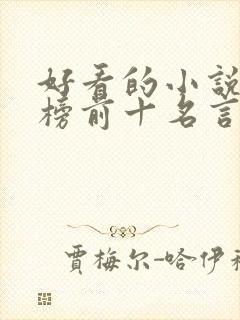 好看的小說
榜前十名言
賈梅尔-哈伊